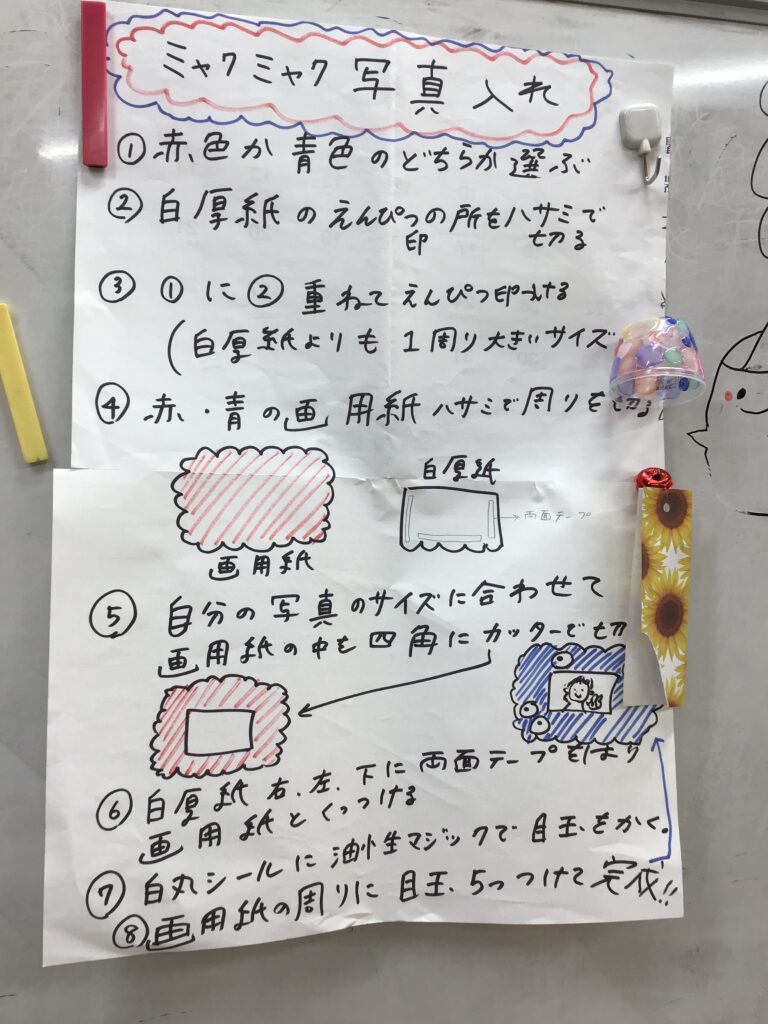 ミャクミャク写真入れ
① 赤色か青色のどちらか選ぶ
② 白厚紙のえんぴつの所をハサミで
印 切る
③ ①に②重ねてえんぴつ印つける
(白厚紙よりも1周り大きいサイズ
④ 赤・青の画用紙ハサミで周りを切る
白厚紙
両面テープ
画用紙
⑤ 自分の写真のサイズに合わせて
画用紙の中を四角にカッターで切
⑥ 白厚紙右、左、下に両面テープをはり
画用紙とくっつける
⑦ 白丸シールに油性マジックで目玉をかく。
⑧ 画用紙の周りに目玉、5つつけて完成!!